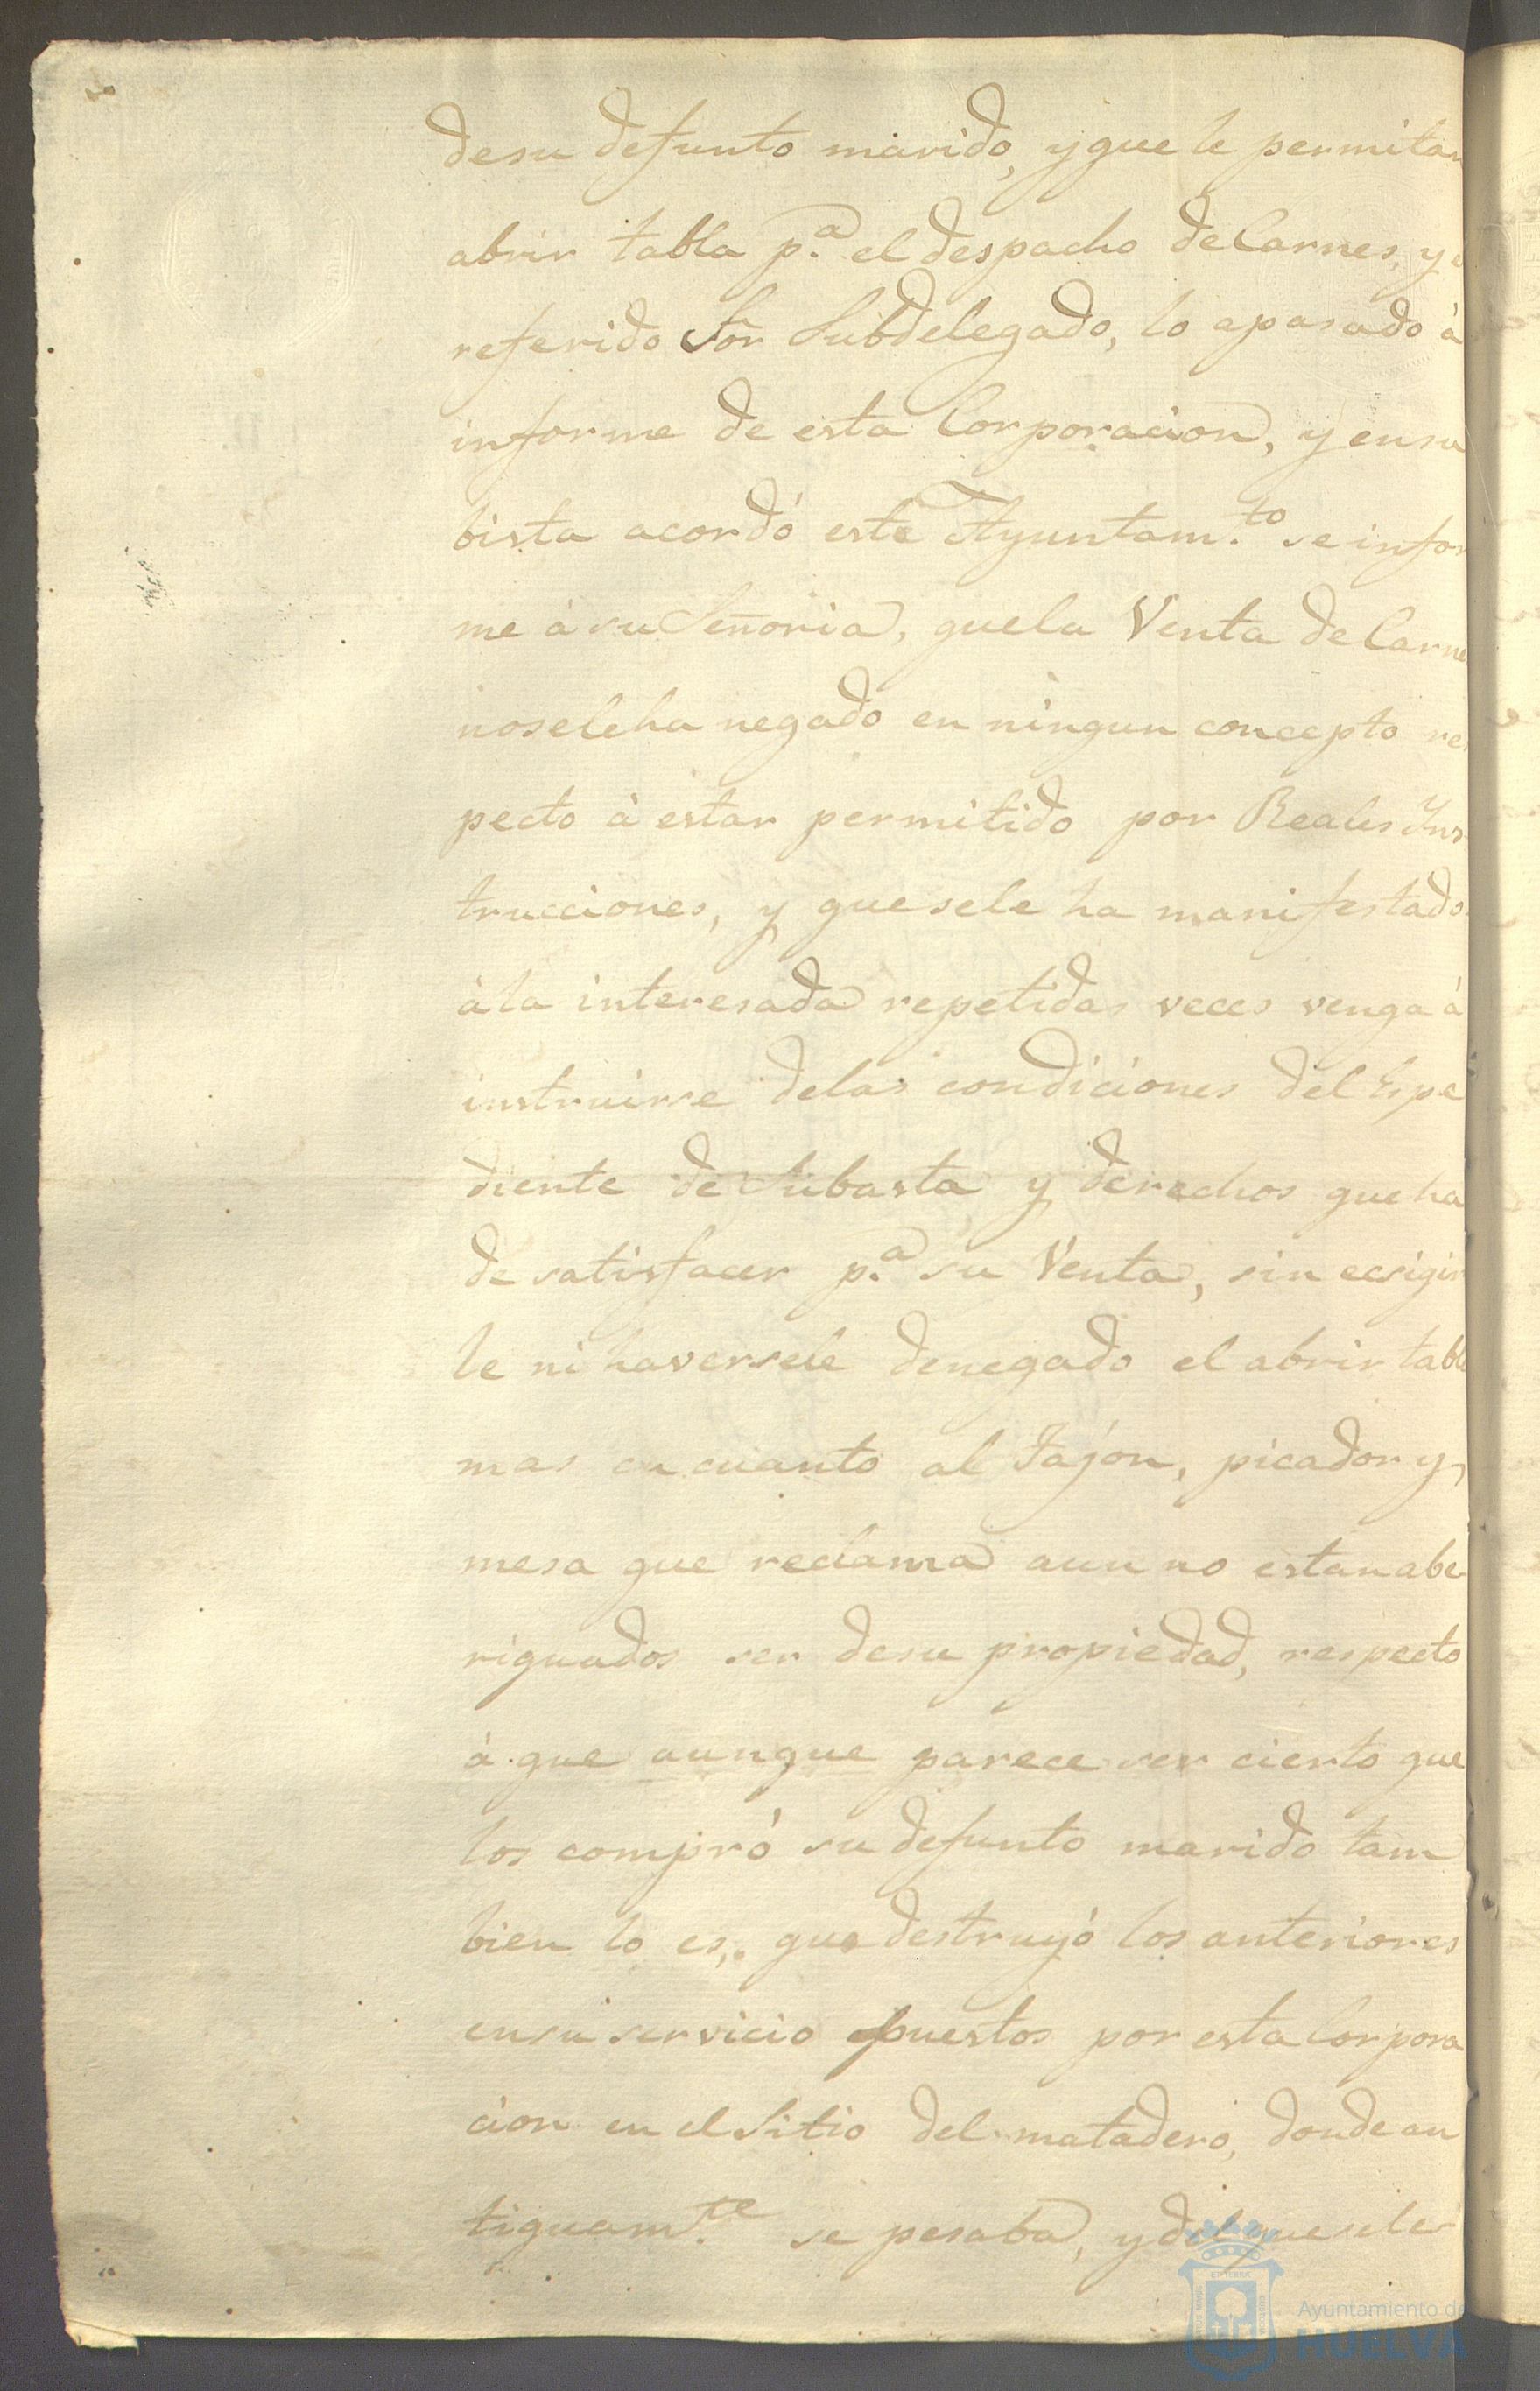 desu defunto marido, y que le permitan
abrir tabla p.ª el despacho de Carnes, y
referido Sõr Subdelegado, lo apasado à
informe de esta Corporacion, y ensu
bista acordó este Ayuntam.to se infor
me à su Señoria, quela Venta de Carne
noseleha negado en ningun concepto res
pecto à estar permitido por Reales Yns
trucciones, y quesele ha manifestado
àla interesada repetidas veces venga à
instruirse delas condiciones del Espe
diente de Subasta y derechos que ha
de satisfacer p.ª su Venta, sin ecsigir
le ni haversele denegado el abrir tabla
mas en cuanto al Tajón, picador y
mesa que reclama aun no estan abe
riguados ser desu propiedad, respecto
à que aunque parece ser cierto que
los compró su defunto marido tam
bien lo es, que destruyó los anteriores
ensu servicio puestos por esta Corpora
cion en el Sitio del matadero, donde an
tiguam.te se pesaba, y del que
Ayuntamiento de
HUELVA